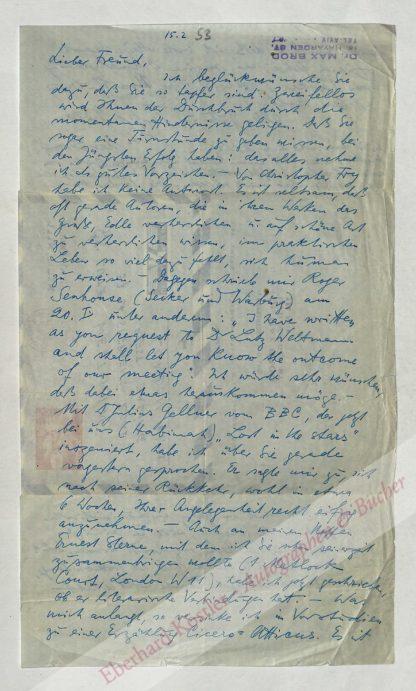 15.2 53
Dr. MAX BROD
16, HAYARDEN ST.
TEL-AVIV
Lieber Freund,
Ich beglückwünsche Sie
dazu, daß Sie so tapfer sind. Zweifellos
wird Ihnen der Durchbruch durch die
momentanen Hindernisse gelingen. Daß Sie
sogar eine Turnstunde zu geben wissen, bei
den Jüngsten Erfolg haben: das alles nehme
ich als gutes Vorzeichen. – Von Christopher Fry
habe ich keine Antwort. Es ist seltsam, daß
oft gerade Autoren, die in ihren Werken das
Große, Edle verherrlichen u. auf schöne Art
zu verherrlichen wissen, im praktischen
Leben so viel dazu fehlt, sich human
zu erweisen. – Dagegen schrieb mir Roger
Senhouse, (Secker und Warburg) am
20. IV unter anderm: „I have written
as you request to Dr Lutz Weltmann
and shall let you know the outcome
of our meeting". Ich würde sehr wünschen,
daß dabei etwas herauskommen möge. –
Mit Julius Gellner vom BBC, der jetzt
bei uns (Habimah) „Lost in the stars"
inszeniert, habe ich über Sie gerade
vorgestern gesprochen. Er sagte mir zu, sich
nach seiner Rückkehr, wohl in etwa
6 Wochen, Ihrer Angelegenheit recht eifrig
anzunehmen. – Auch an meinen Neffen
Ernest Sterne, mit dem ich Sie
zusammenbringen wollte
Court, London W 11), habe ich jetzt geschrieben,
ob er literarische Verbindungen hat. – Was
mich anlangt, so ich in Vorstudien
zu einer Erzählung Cicero – Atticus. Es ist
Eberhard Köstler Autographen & Bücher